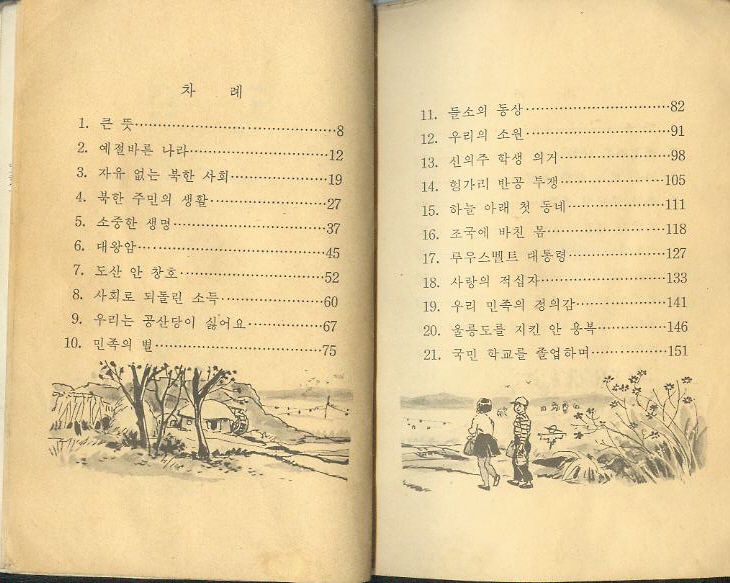 차 례
1. 큰 뜻……………………………8
2. 예절바른 나라……………………12
3. 자유 없는 북한 사회……………19
4. 북한 주민의 생활………………27
5. 소중한 생명………………………37
6. 대왕암……………………………45
7. 도산 안 창호……………………52
8. 사회로 되돌린 소득……………60
9. 우리는 공산당이 싫어요…………67
10. 민족의 별………………………75
11. 들소의 동상……………………82
12. 우리의 소원……………………91
13. 신의주 학생 의거………………98
14. 헝가리 반공 투쟁………………105
15. 하늘 아래 첫 동네……………111
16. 조국에 바친 몸…………………118
17. 루우스벨트 대통령……………127
18. 사랑의 적십자…………………133
19. 우리 민족의 정의감……………141
20. 울릉도를 지킨 안 용복…………146
21. 국민 학교를 졸업하며…………151